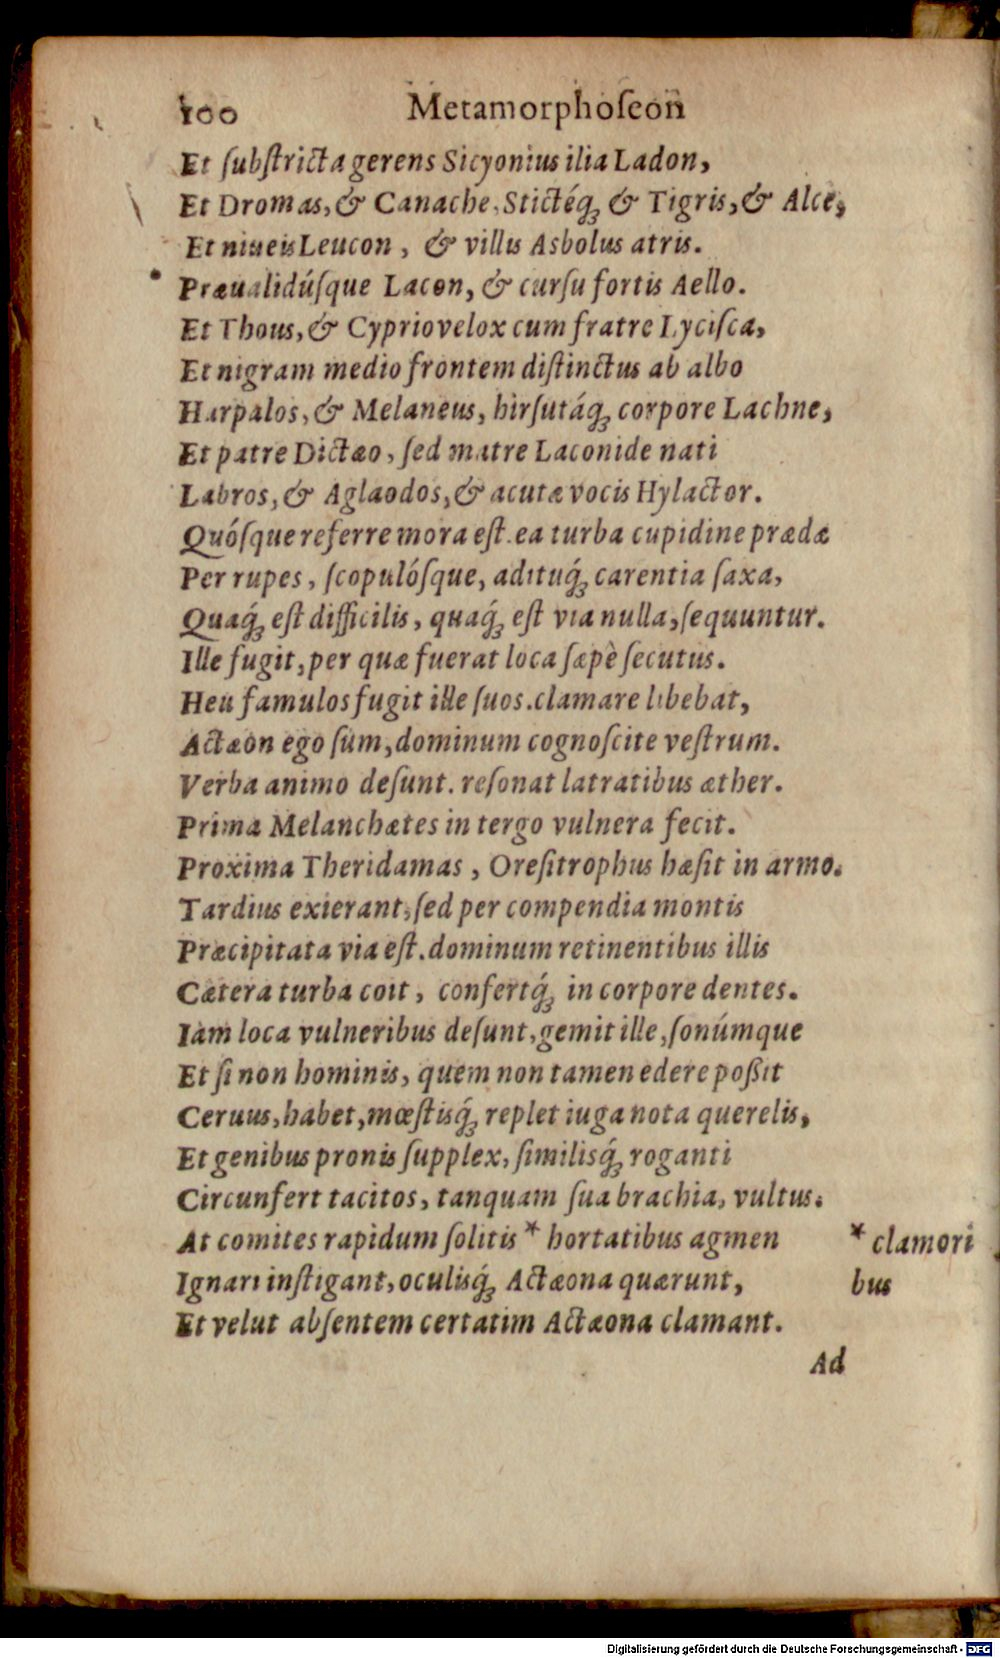 100 Metamorphoſeon
Et ſubſtricta gerens Sicyonius ilia Ladon,
Et Dromas, & Canache, Stictéq́ꝫ & Tigris, & Alce,
Et niueis Leucon, & villis Asbolus atris.
Præualidúſque Lacon, & curſu fortis Aello.
Et Thous, & Cypriovelox cum fratre Lyciſca,
Et nigram medio frontem diſtinctus ab albo
Harpalos, & Melaneus, hirſutáq́ꝫ corpore Lachne,
Et patre Dictæo, ſed matre Laconide nati
Labros, & Aglaodos, & acutæ vocis Hylactor.
Quóſque referre mora eſt. ea turba cupidine prædæ
Per rupes, ſcopulóſque, adituq́ꝫ carentia ſaxa,
Quaq́ꝫ eſt difficilis, quaq́ꝫ eſt via nulla, ſequuntur.
Ille fugit, per quæ fuerat loca ſæpè ſecutus.
Heu famulos fugit ille ſuos. clamare libebat,
Actæon ego ſum, dominum cognoſcite veſtrum.
Verba animo deſunt. reſonat latratibus æther.
Prima Melanchætes in tergo vulnera fecit.
Proxima Theridamas, Oreſitrophus hæſit in armo.
Tardius exierant, ſed per compendia montis
Præcipitata via eſt. dominum retinentibus illis
Cætera turba coit, confertq́ꝫ in corpore dentes.
Iam loca vulneribus deſunt, gemit ille, ſonúmque
Et ſi non hominis, quem non tamen edere poßit
Ceruus, habet, mœſtisq́ꝫ replet iuga nota querelis,
Et genibus pronis ſupplex, ſimilisq́ꝫ roganti
Circunfert tacitos, tanquam ſua brachia, vultus.
At comites rapidum ſolitis * hortatibus agmen * clamori
Ignari inſtigant, oculisq́ꝫ Actæona quærunt, bus
Et velut abſentem certatim Actæona clamant.
Ad
Digitalisierung gefördert durch die Deutsche Forschungsgemeinschaft - DFG